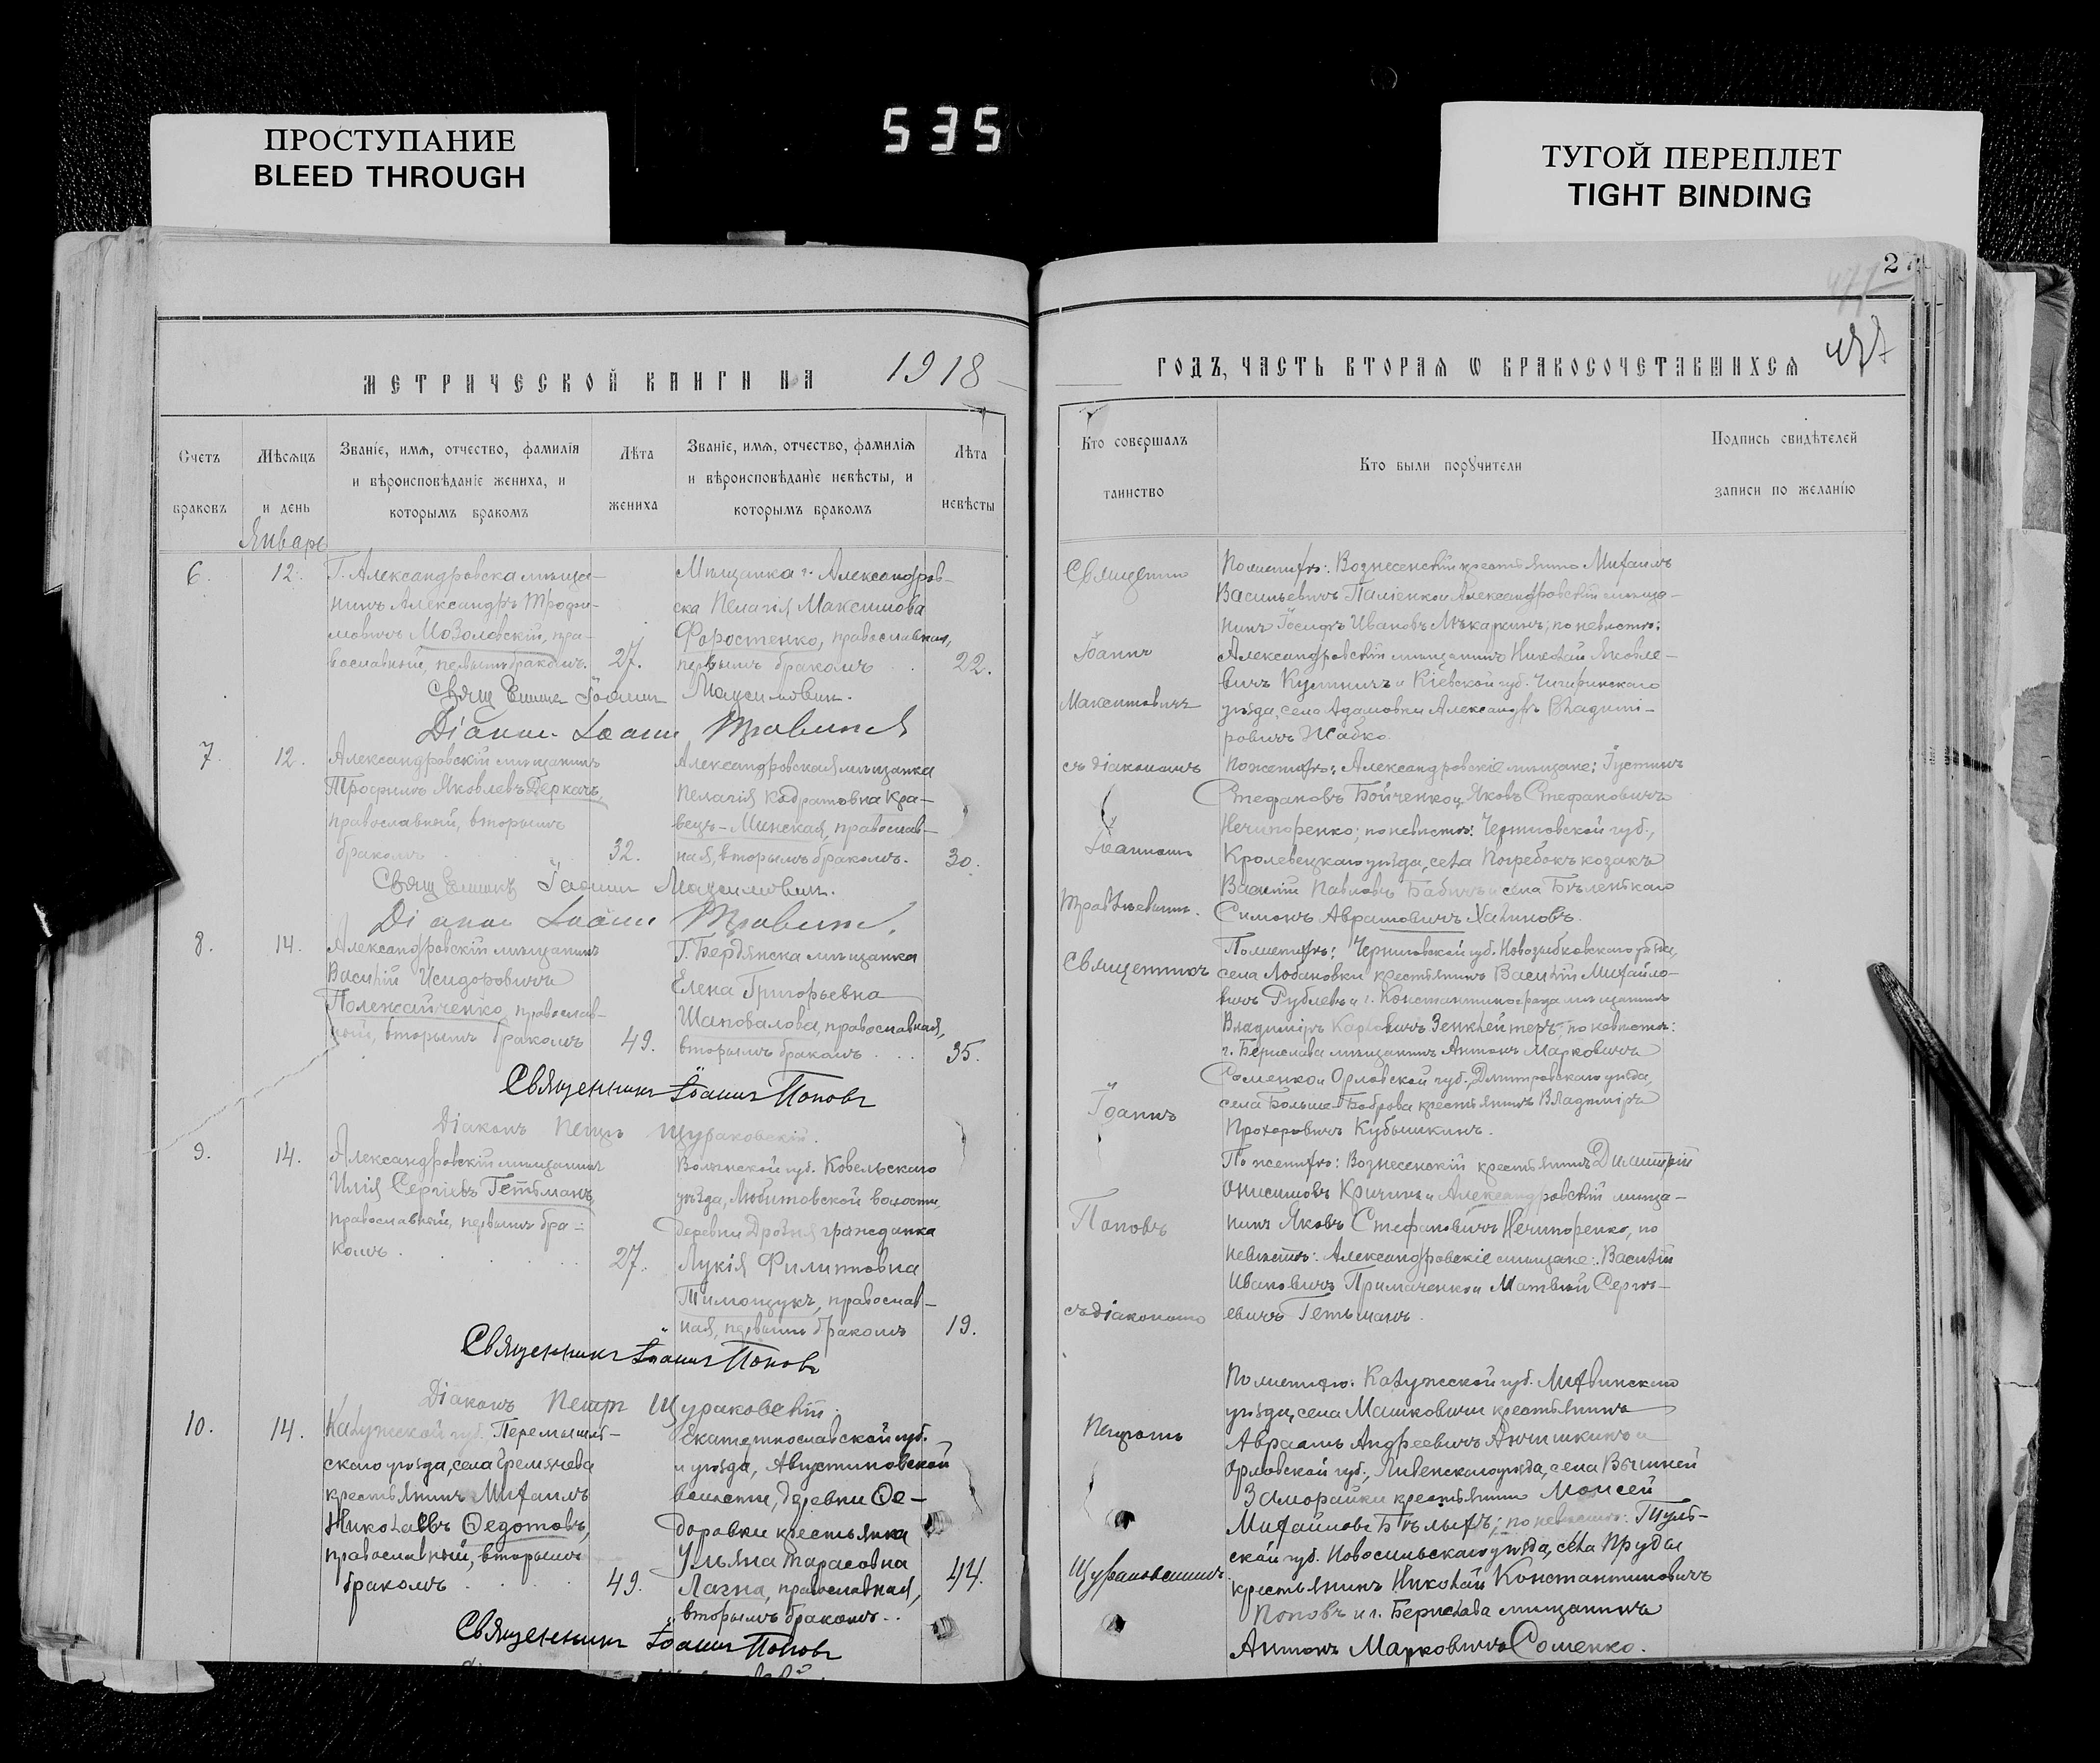 ПРОСТУПАНИЕ
BLEED THROUGH
535
ТУГОЙ ПЕРЕПЛЕТ
TIGHT BINDING
27
МЕТРИЧЕСКОЙ КНИГИ НА 1918
Счетъ браковъ
Мѣсяцъ и день
Званіе, имя, отчество, фамилія и вѣроисповѣданіе жениха, и которымъ бракомъ
Лѣта жениха
Званіе, имя, отчество, фамилія и вѣроисповѣданіе невѣсты, и которымъ бракомъ
Лѣта невѣсты
Январь
6. 12.
Г. Александровска мѣща-
нинъ Александръ Трофи-
мовичъ Мозоловскій, пра-
вославный, первымъ бракомъ. 27.
Мѣщанка г. Александров-
ска Пелагія Максимова
Форостенко, православная,
первымъ бракомъ 22.
Іоаннъ Максимовичъ.
Іоаннъ
7. 12.
Александровскій мѣщанинъ
Трофимъ Яковлевъ Деркачъ,
православный, вторымъ
бракомъ 32.
Александровская мѣщанка
Пелагія Кодратовна Кра-
вецъ-Минская, православ-
ная, вторымъ бракомъ. 30.
Іоаннъ Максимовичъ.
Іоаннъ
8. 14.
Александровскій мѣщанинъ
Василій Исидоровичъ
Полежайченко, православ-
ный, вторымъ бракомъ 49.
Г. Бердянска мѣщанка
Елена Григорьевна
Шаповалова, православная,
вторымъ бракомъ 35.
Священникъ Іоаннъ Поповъ
Діаконъ Петръ Щураковскій.
9. 14.
Александровскій мѣщанинъ
Илія Сергіевъ Гетьманъ,
православный, первымъ бра-
комъ 27.
Волынской губ. Ковельскаго
уѣзда, Любитовской волости,
деревни гражданка
Лукія Филипповна
Тимощукъ, православ-
ная, первымъ бракомъ 19.
Священникъ Іоаннъ Поповъ
Діаконъ Петръ Щураковскій.
10. 14.
Калужской губ. Перемышль-
скаго уѣзда, села Гремячева
крестьянинъ Михаилъ
Николаевъ Ѳедотовъ,
православный, вторымъ
бракомъ 49.
Екатеринославской губ.
и уѣзда, Августиновской
волости, деревни Ѳе-
доровки крестьянка
Ульяна Тарасовна
Лагна, православная, 44.
вторымъ бракомъ..
Священникъ Іоаннъ Поповъ
ГОДЪ, ЧАСТЬ ВТОРАЯ Ѡ БРАКОСОЧЕТАВШИХСЯ
Кто совершалъ таинство
Кто были порꙋчители
Подпись свидѣтелей записи по желанію
Іоаннъ
Максимовичъ
съ діакономъ
Іоанномъ
Священникъ
Іоаннъ
Поповъ
съ діакономъ
Петромъ
Щураковскимъ.
По женихѣ: Вознесенскій крестьянинъ Михаилъ
Васильевичъ Паліенко и Александровскій мѣща-
нинъ Іосифъ Ивановъ Мѣкаркинъ; по невѣстѣ:
Александровскій мѣщанинъ Николай Яковле-
вичъ и Кіевской губ. Чигиринскаго
уѣзда, села Адамовки Александръ Владими-
ровичъ Жабко.
По женихѣ: Александровскіе мѣщане: Іустинъ
Стефановъ Бойченко и Яковъ Стефановичъ
Нечипоренко; по невѣстѣ: Черниговской губ.,
Кролевецкаго уѣзда, села Погребокъ козакъ
Василій Павловъ Бабичъ и села Бѣленькаго
Симонъ Аврамовичъ Халиновъ.
По женихѣ: Черниговской губ. Новозыбковскаго уѣзда,
села Лобановки крестьянинъ Василій Михайло-
вичъ Рублевъ и г. Константинограда мѣщанинъ
Владиміръ Карловичъ Зенклейтеръ, по невѣстѣ:
г. Берислава мѣщанинъ Антонъ Марковичъ
Соменко и Орловской губ., Дмитровскаго уѣзда,
села Больше-Боброва крестьянинъ Владиміръ
Прохоровичъ Кубышкинъ.
По женихѣ: Вознесенскій крестьянинъ Димитрій
Онисимовъ Кричунъ и Александровскій мѣща-
нинъ Яковъ Стефановичъ Нечипоренко, по
невѣстѣ: Александровскіе мѣщане: Василій
Ивановичъ Примаченко и Матвѣй Сергѣ-
евичъ Гетьманъ.
По женихѣ: Калужской губ. Лихвинскаго
уѣзда, села Машковичи крестьянинъ
Авраамъ Андреевичъ и
Орловской губ., Ливенскаго уѣзда, села Вышней
Заморайки крестьянинъ Моисей
Михайловъ Бѣлыхъ; по невѣстѣ: Туль-
ской губ. Новосильскаго уѣзда, села Пруды
крестьянинъ Николай Константиновичъ
Поповъ и г. Берислава мѣщанинъ
Антонъ Марковичъ Соменко.